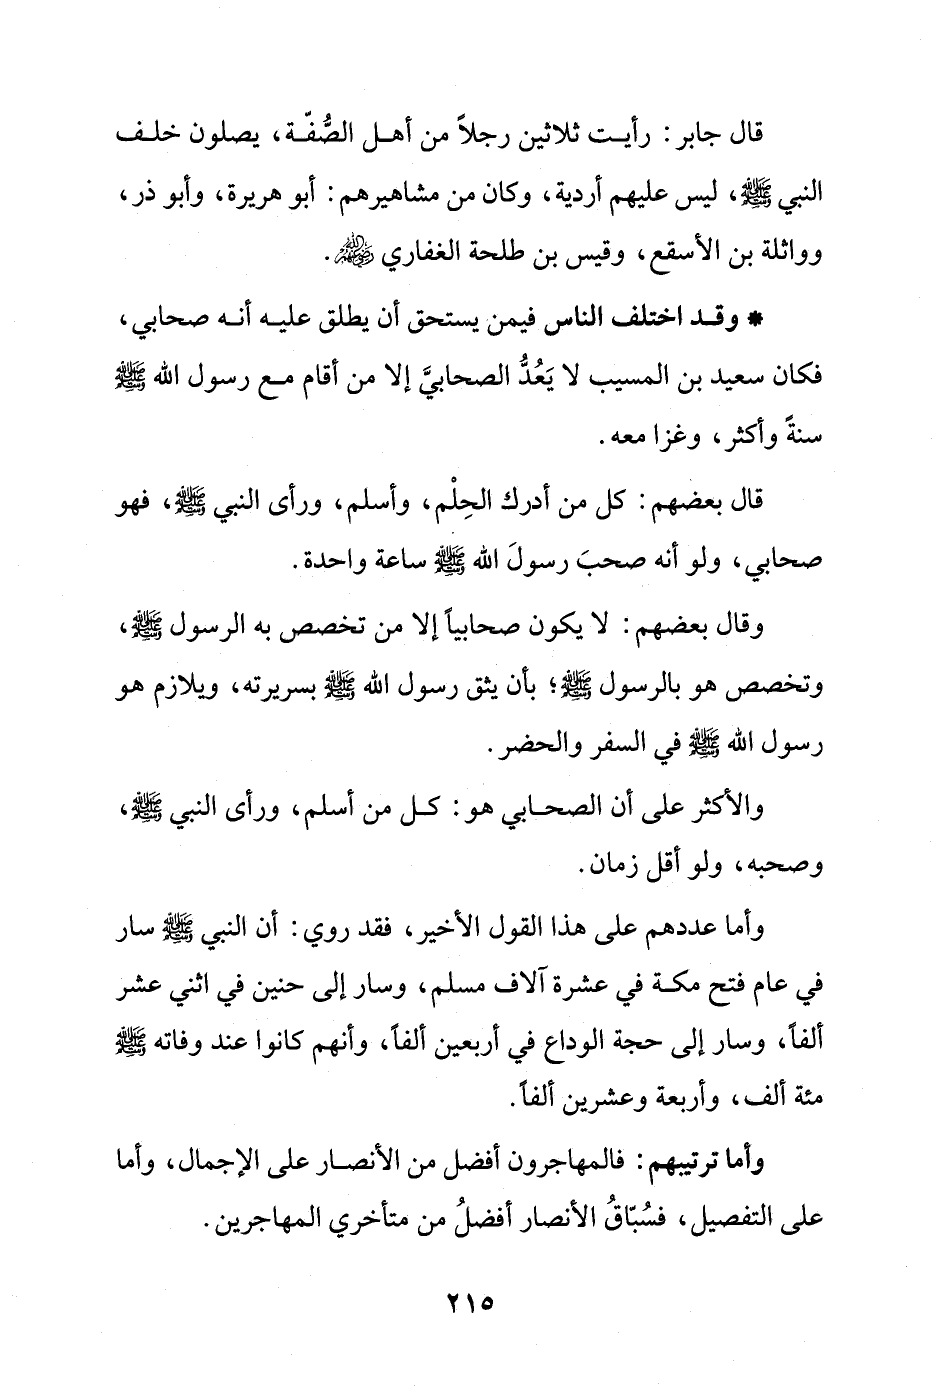 قال جابر : رأيت ثلاثين رجلاً من أهل الصُّفّة، يصلون خلف
النبي ﷺ، ليس عليهم أردية، وكان من مشاهيرهم : أبو هريرة، وأبو ذر،
وواثلة بن الأسقع، وقيس بن طلحة الغفاري رضي الله عنهم.
* وقد اختلف الناس فيمن يستحق أن يطلق عليه أنه صحابي،
فكان سعيد بن المسيب لا يَعُدُّ الصحابيَّ إلا من أقام مع رسول الله ﷺ
سنةً وأكثر، وغزا معه.
قال بعضهم : كل من أدرك الحِلْم، وأسلم، ورأى النبي ﷺ، فهو
صحابي، ولو أنه صحبَ رسولَ الله ﷺ ساعة واحدة.
وقال بعضهم : لا يكون صحابياً إلا من تخصص به الرسول ﷺ،
وتخصص هو بالرسول ﷺ؛ بأن يثق رسول الله ﷺ بسريرته، ويلازم هو
رسول الله ﷺ في السفر والحضر.
والأكثر على أن الصحابي هو : كل من أسلم، ورأى النبي ﷺ،
وصحبه، ولو أقل زمان.
وأما عددهم على هذا القول الأخير، فقد روي : أن النبي ﷺ سار
في عام فتح مكة في عشرة آلاف مسلم، وسار إلى حنين في اثني عشر
ألفاً، وسار إلى حجة الوداع في أربعين ألفاً، وأنهم كانوا عند وفاته ﷺ
مئة ألف، وأربعة وعشرين ألفاً.
وأما ترتيبهم : فالمهاجرون أفضل من الأنصار على الإجمال، وأما
على التفصيل، فسُبّاقُ الأنصار أفضلُ من متأخري المهاجرين.
٢١٥